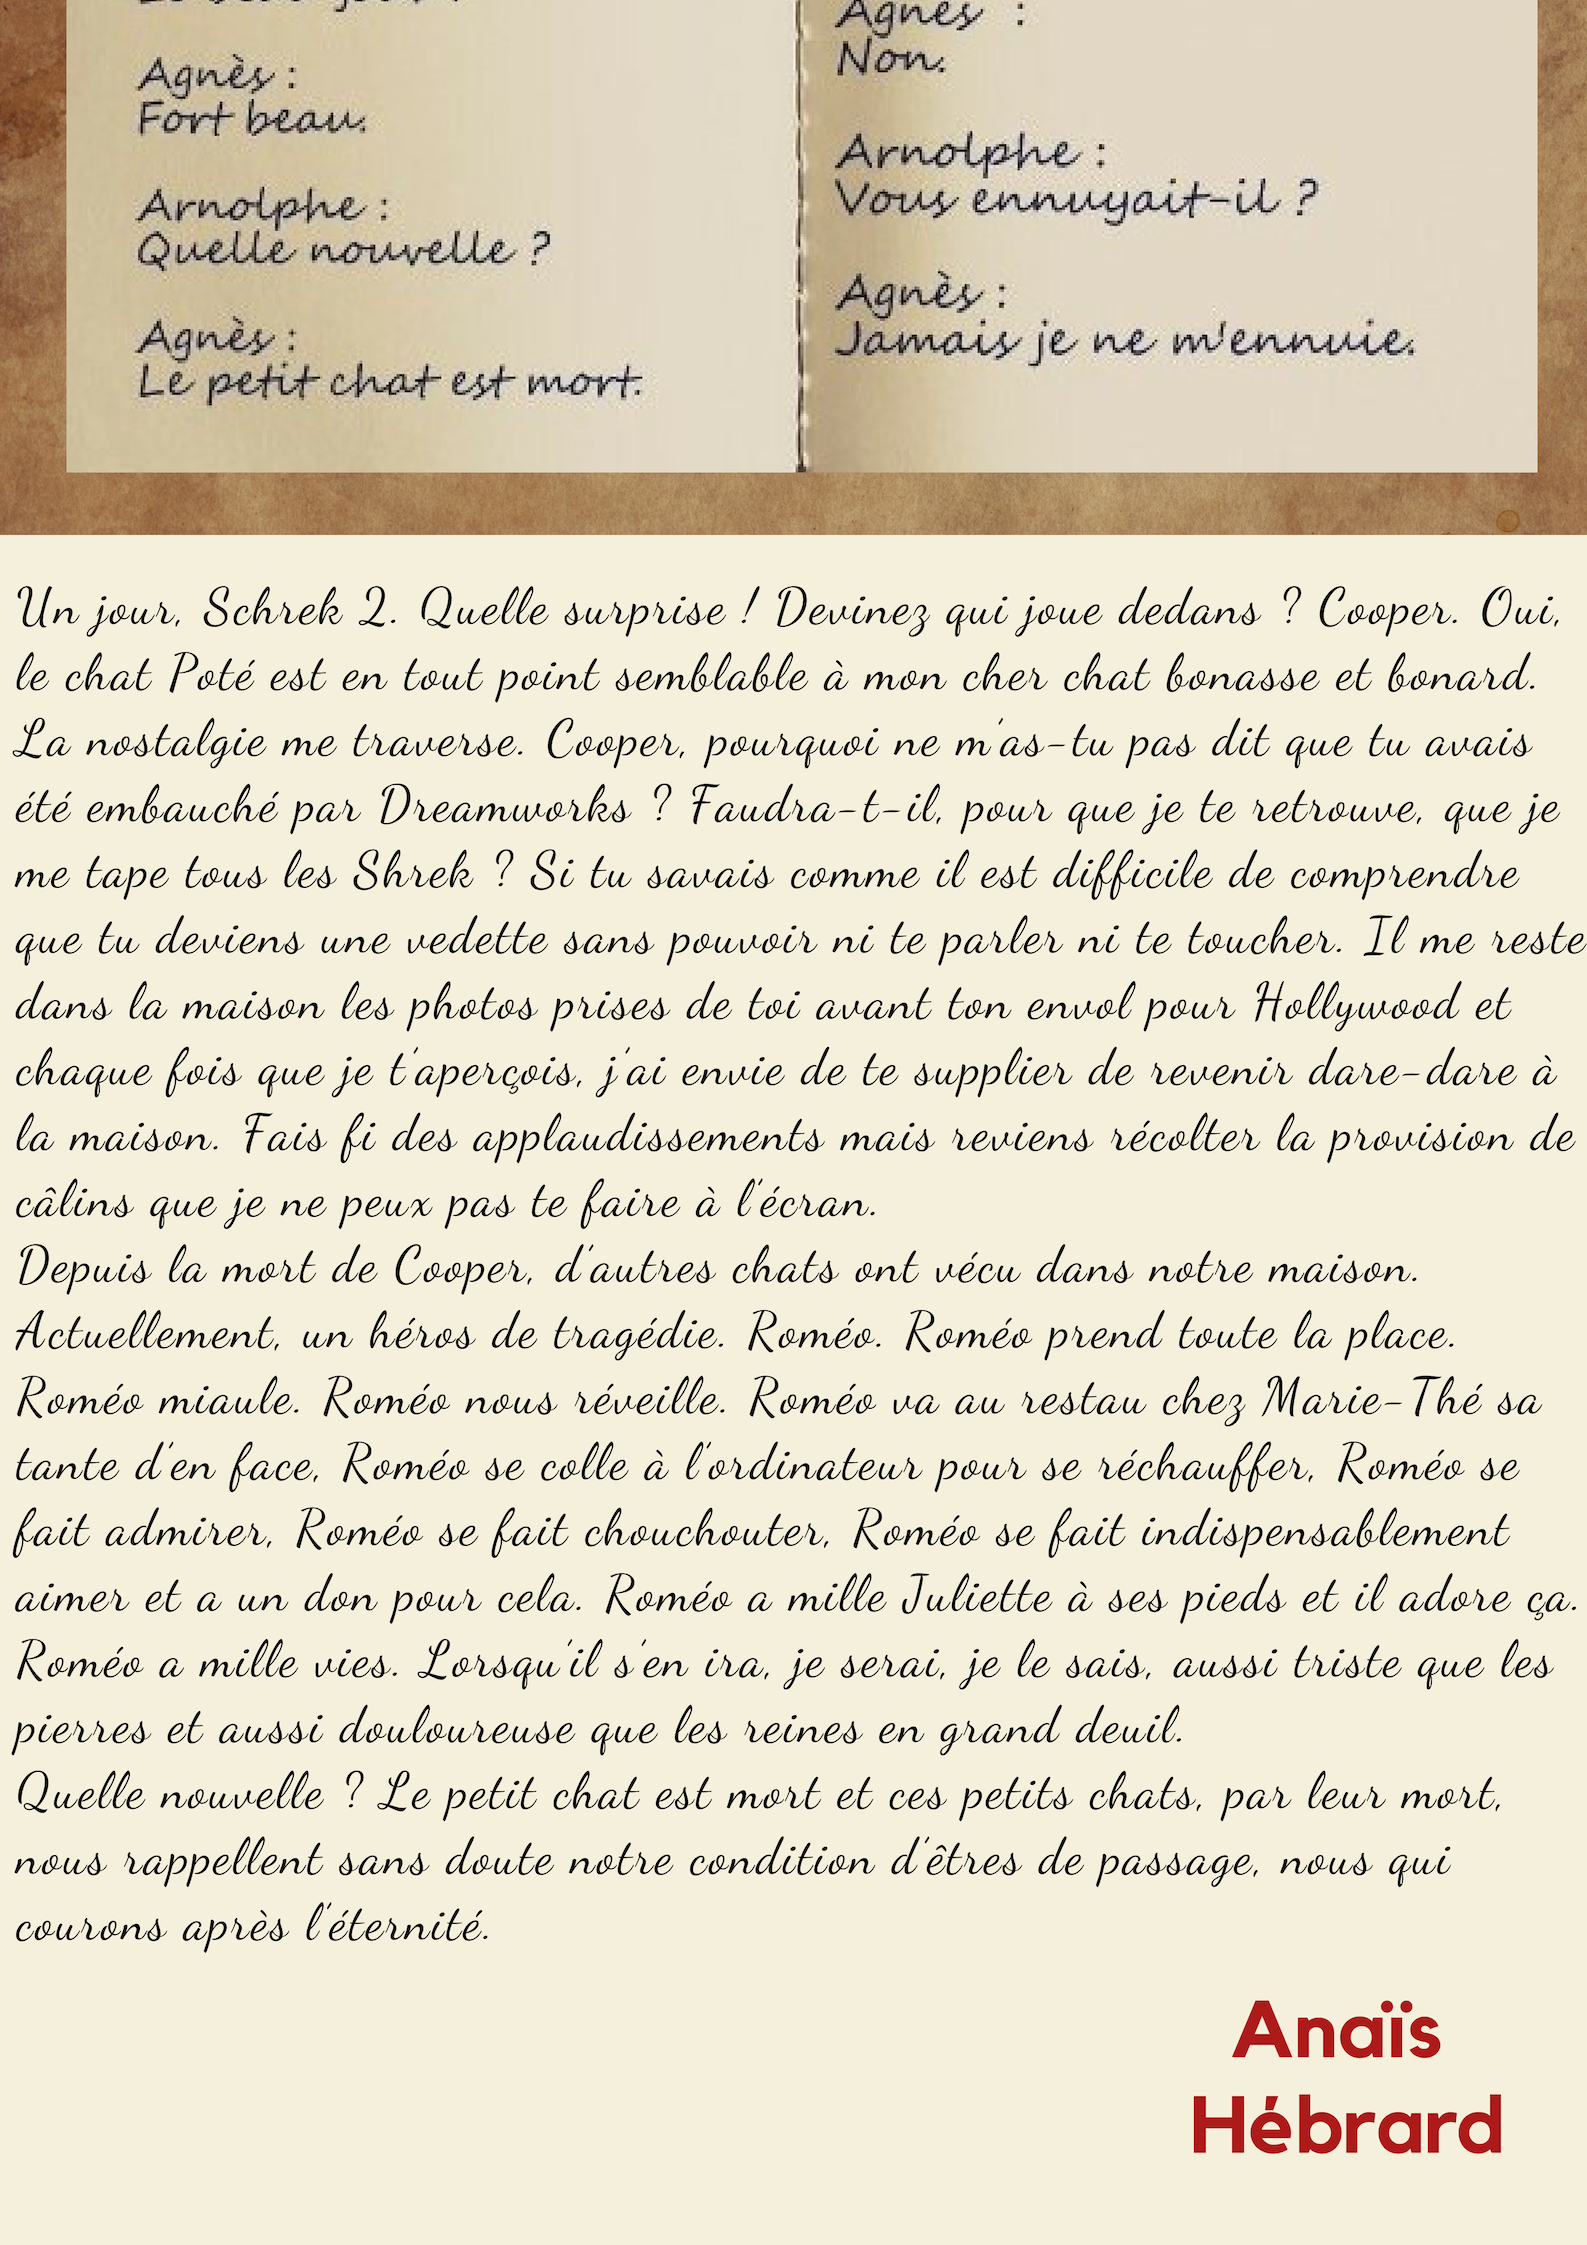 Agnès :
Fort beau.
Arnolphe :
Quelle nouvelle ?
Agnès :
Le petit chat est mort.
Agnès :
Non.
Arnolphe :
Vous ennuyait-il ?
Agnès :
Jamais je ne m'ennuie.
Un jour, Schrek 2. Quelle surprise ! Devinez qui joue dedans ? Cooper. Oui,
le chat Poté est en tout point semblable à mon cher chat bonasse et bonard.
La nostalgie me traverse. Cooper, pourquoi ne m'as-tu pas dit que tu avais
été embauché par Dreamworks ? Faudra-t-il, pour que je te retrouve, que je
me tape tous les Shrek ? Si tu savais comme il est difficile de comprendre
que tu deviens une vedette sans pouvoir ni te parler ni te toucher. Il me reste
dans la maison les photos prises de toi avant ton envol pour Hollywood et
chaque fois que je t'aperçois, j'ai envie de te supplier de revenir dare-dare à
la maison. Fais fi des applaudissements mais reviens récolter la provision de
câlins que je ne peux pas te faire à l'écran.
Depuis la mort de Cooper, d'autres chats ont vécu dans notre maison.
Actuellement, un héros de tragédie. Roméo. Roméo prend toute la place.
Roméo miaule. Roméo nous réveille. Roméo va au restau chez Marie-Thé sa
tante d'en face, Roméo se colle à l'ordinateur pour se réchauffer, Roméo se
fait admirer, Roméo se fait chouchouter, Roméo se fait indispensablement
aimer et a un don pour cela. Roméo a mille Juliette à ses pieds et il adore ça.
Roméo a mille vies. Lorsqu'il s'en ira, je serai, je le sais, aussi triste que les
pierres et aussi douloureuse que les reines en grand deuil.
Quelle nouvelle ? Le petit chat est mort et ces petits chats, par leur mort,
nous rappellent sans doute notre condition d'êtres de passage, nous qui
courons après l'éternité.
Anaïs
Hébrard